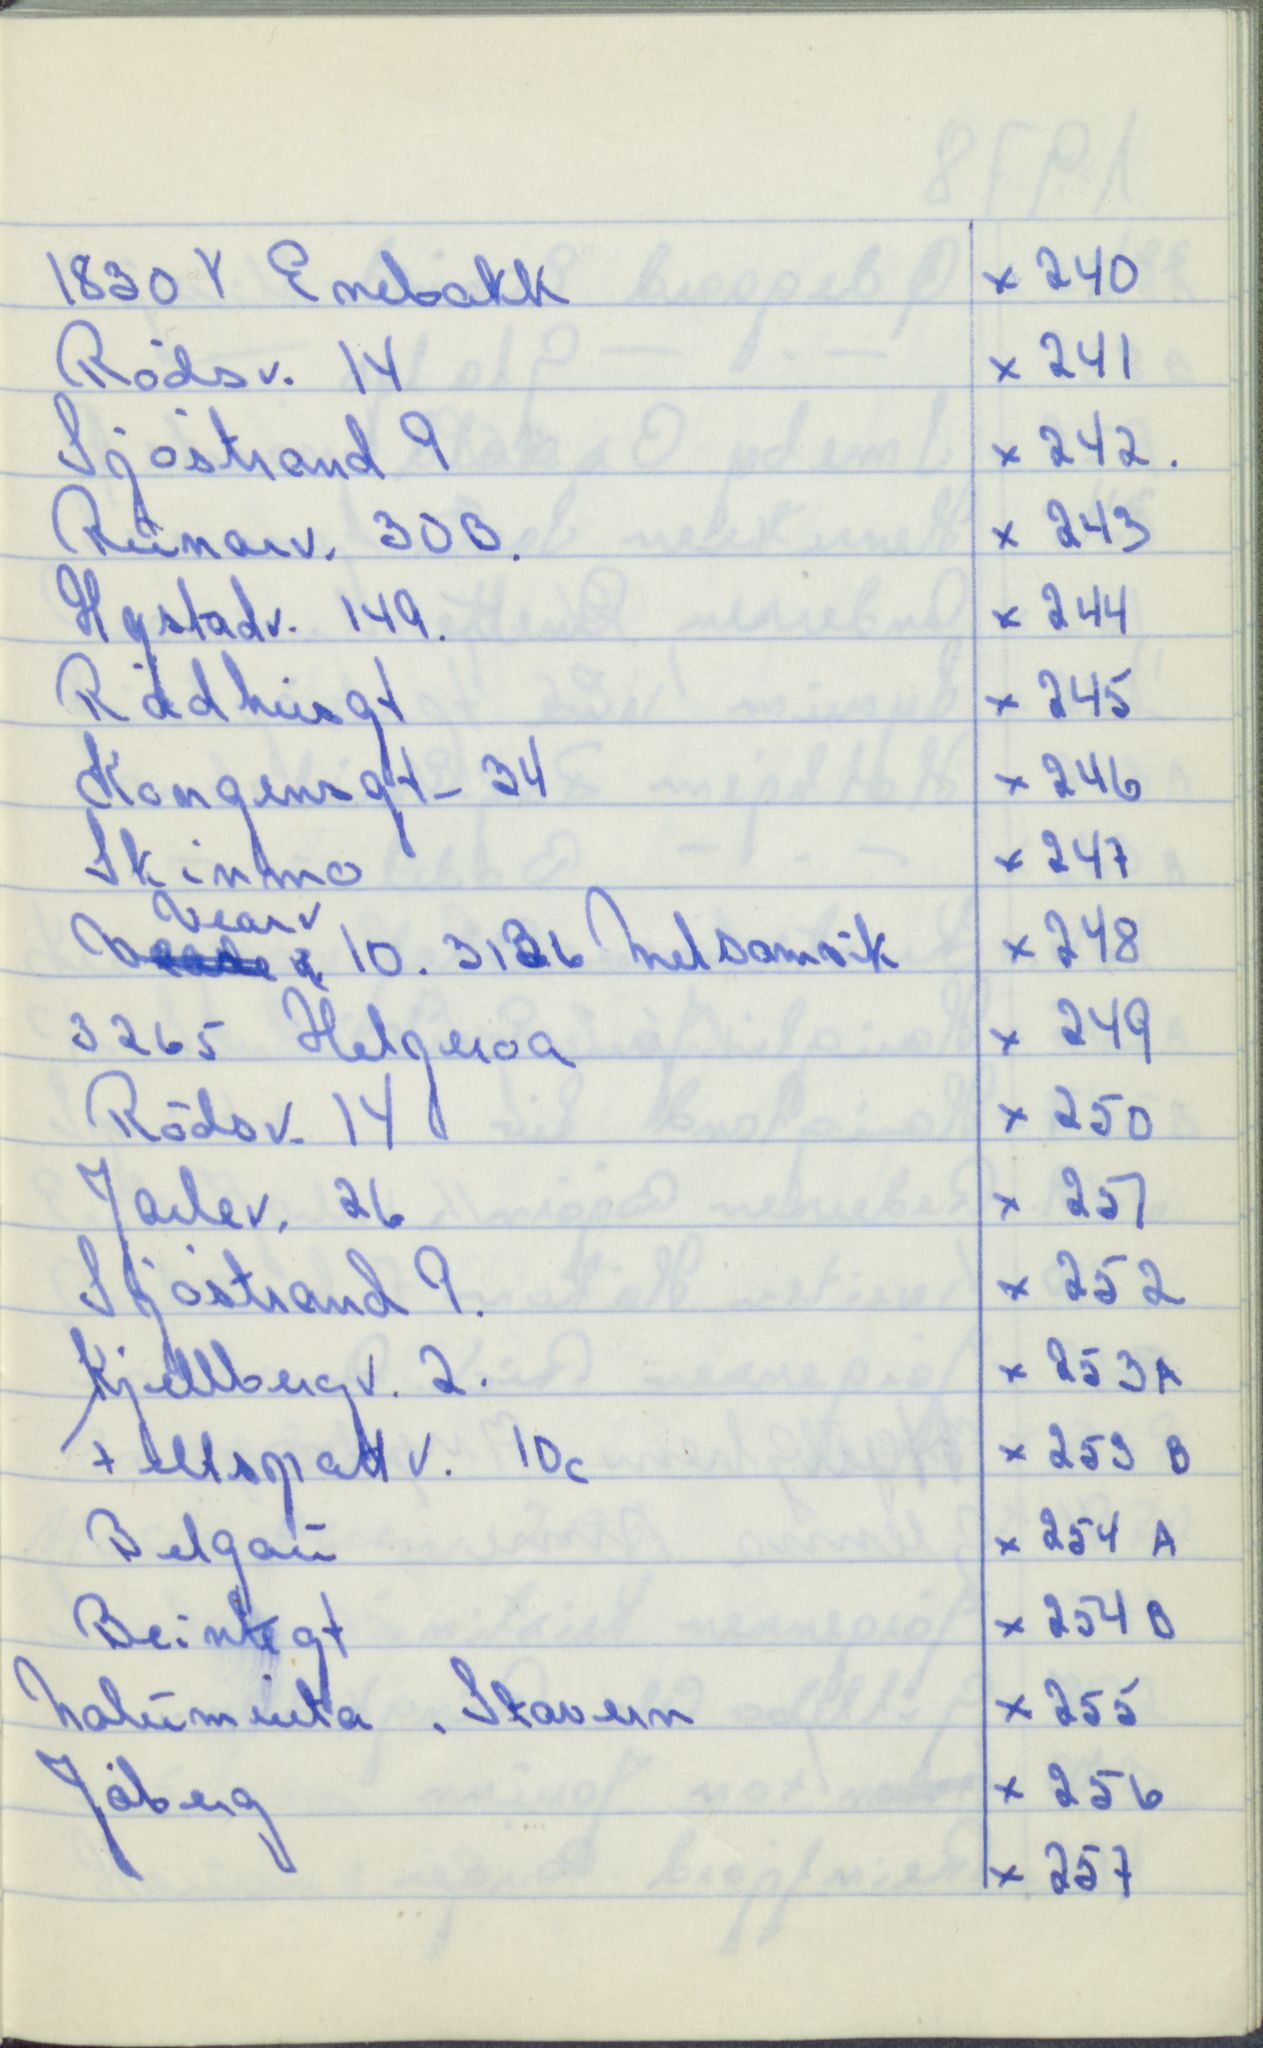 1830 Y Enebakk × 240
Rödsv. 14 × 241
Sjöstrand 9 × 242.
Rünarv. 30B. × 243
Hystadv. 149. × 244
Rådhüsgt × 245
Kongensgt - 34 × 246
Skinmo × 247
Vearv
10. 3126 Melsomvik × 248
3265 Helgeroa × 249
Rödsv. 14 × 250
Jarlev. 26 × 251
Sjöstrand 9. × 252
Kjellbergv. 2. × 253 A
+ eltspattv. 10c × 253 B
Belgaü × 254 A
Beintegt × 254 B
Nalümveita . Stavern × 255
Jåberg × 256
× 257